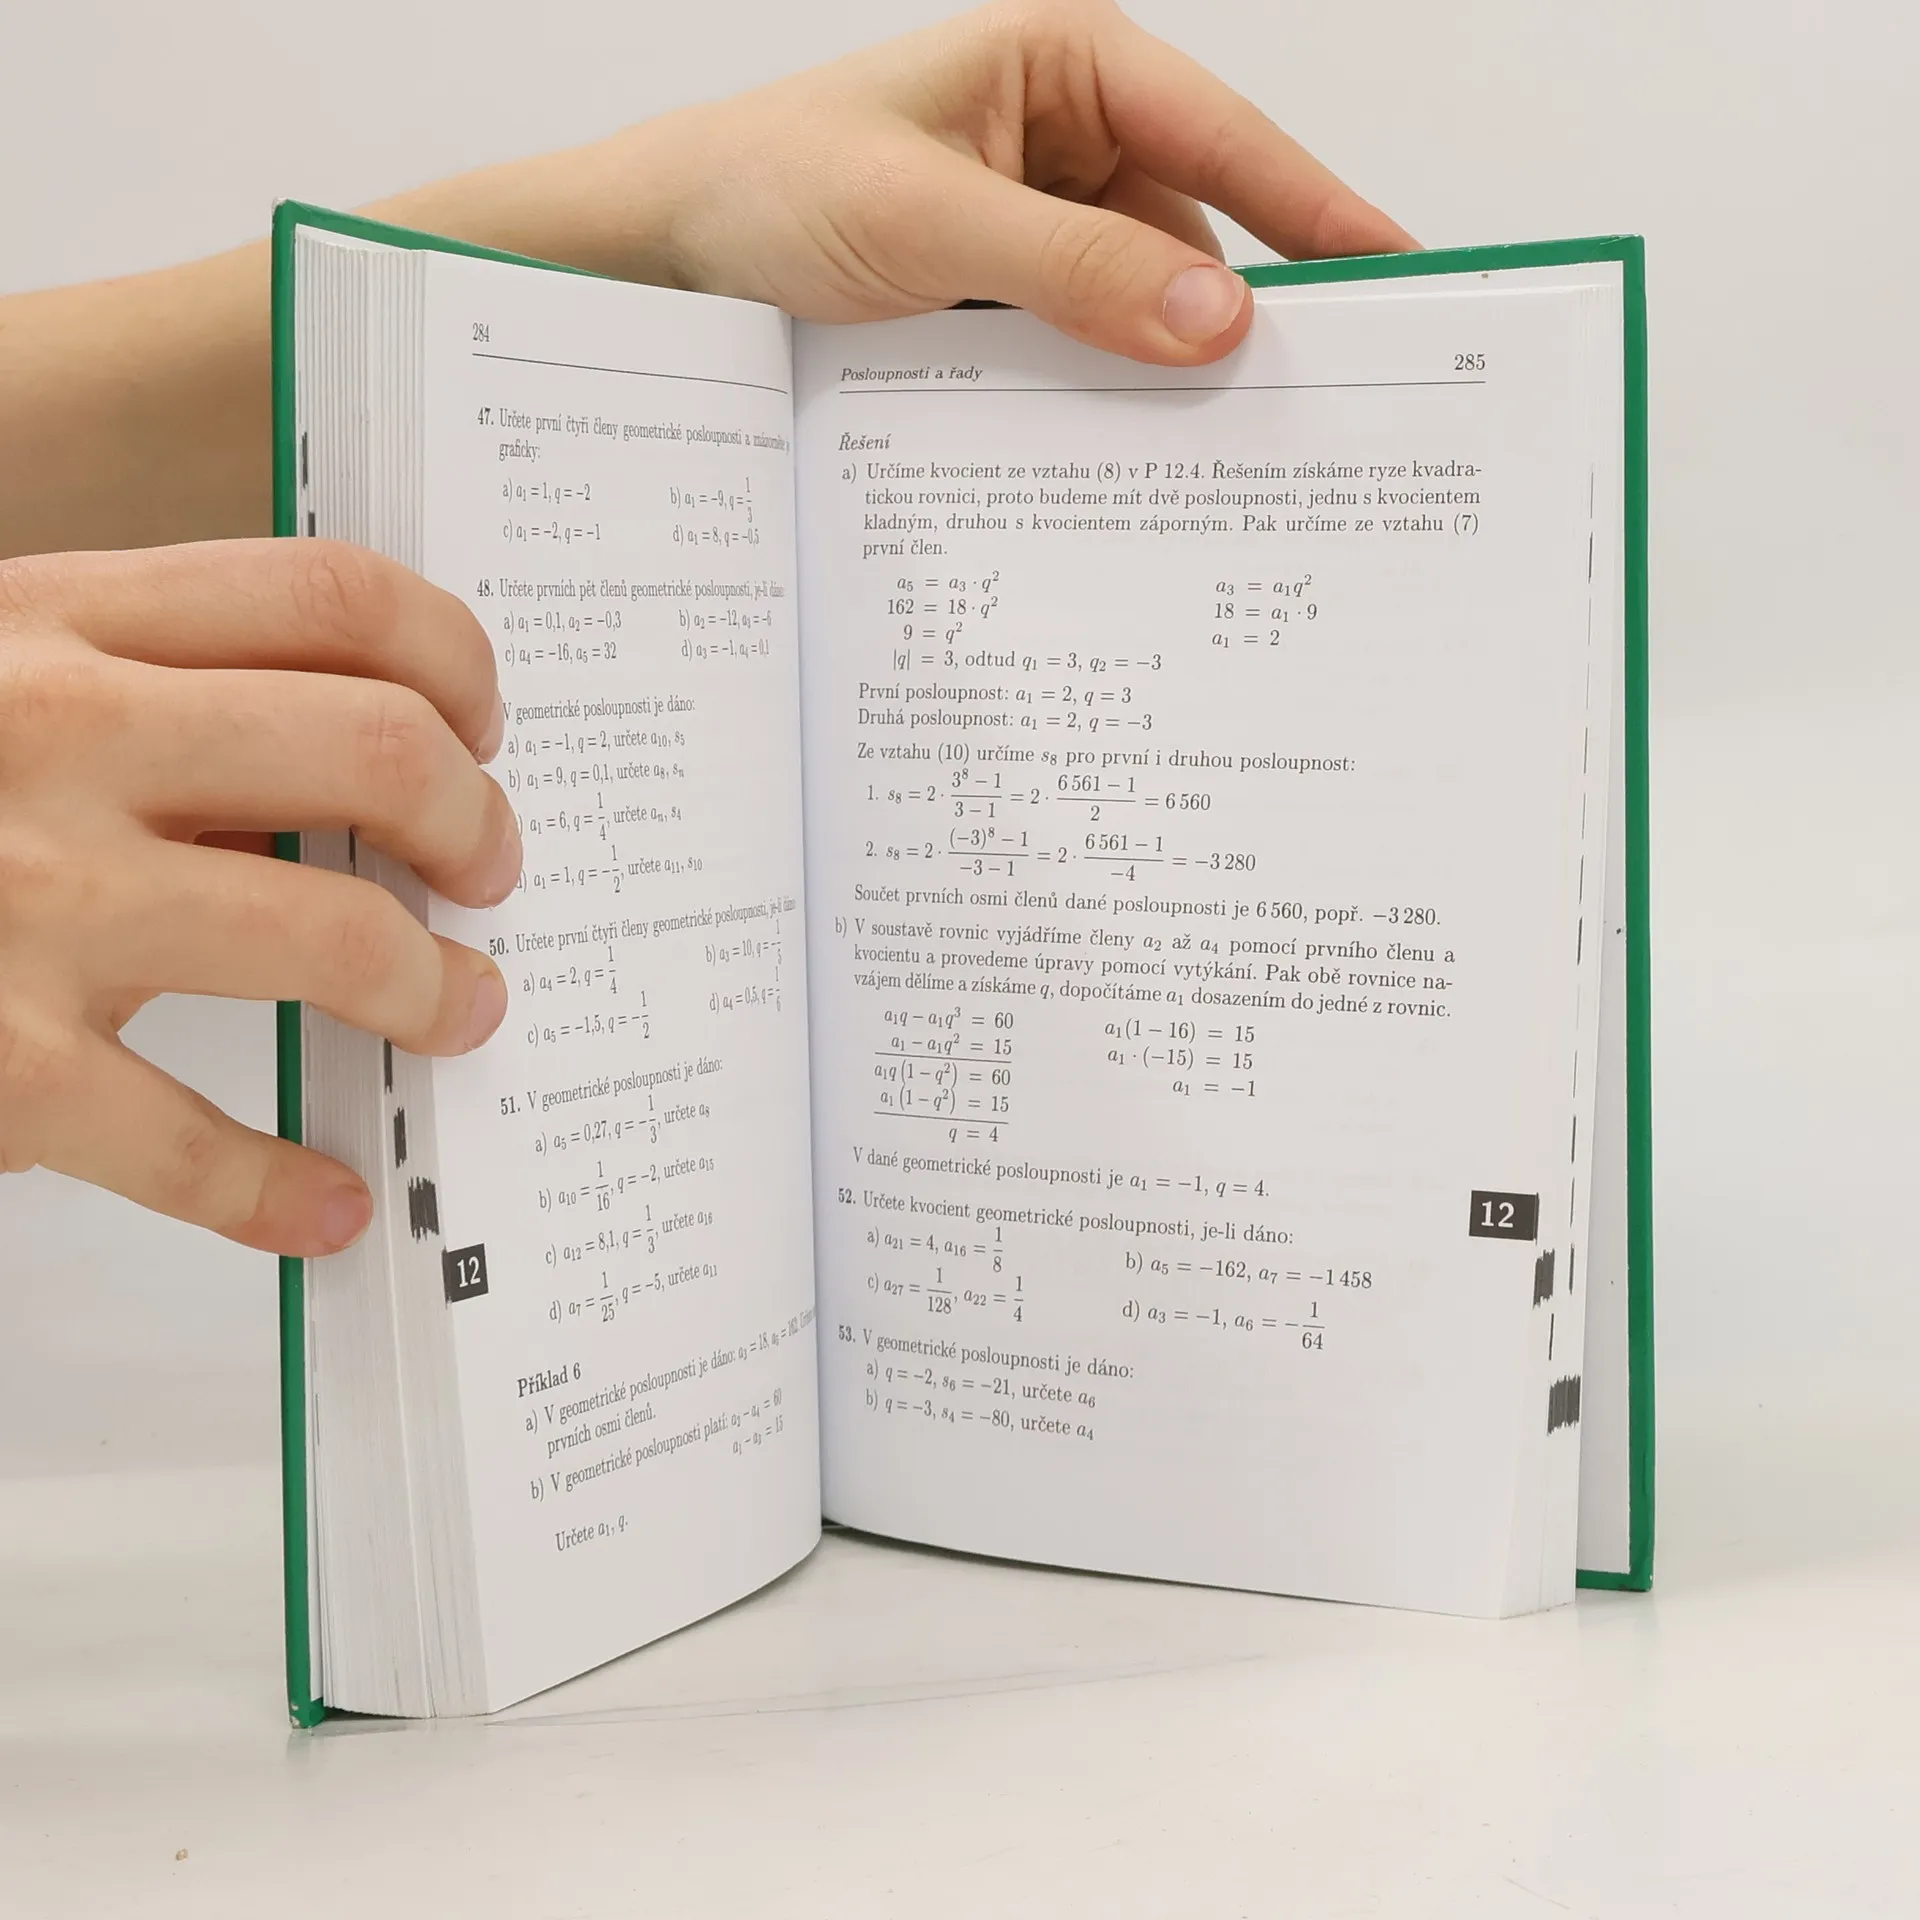 284
47. Určete první čtyři členy geometrické posloupnosti a znázorněte
graficky:
a) a₁ = 1, q = −2 b) a₁ = −9, q = 1/3
c) a₁ = −2, q = −1 d) a₁ = 8, q = −0,5
48. Určete prvních pět členů geometrické posloupnosti, je-li dáno:
a) a₁ = 0,1, a₂ = −0,3 b) a₂ = −12, a₃ = −6
c) a₄ = −16, a₅ = 32 d) a₃ = −1, a₄ = 0,1
V geometrické posloupnosti je dáno:
a) a₁ = −1, q = 2, určete a₁₀, s₅
b) a₁ = 9, q = 0,1, určete a₈, sₙ
) a₁ = 6, q = 1/4, určete aₙ, s₄
d) a₁ = 1, q = −1/2, určete a₁₁, s₁₀
50. Určete první čtyři členy geometrické posloupnosti, je-li dáno
a) a₄ = 2, q = 1/4 b) a₃ = 10, q = −1/5
c) a₅ = −1,5, q = −1/2 d) a₄ = 0,5, q = 1/6
51. V geometrické posloupnosti je dáno:
a) a₅ = 0,27, q = −1/3, určete a₈
b) a₁₀ = 1/16, q = −2, určete a₁₅
c) a₁₂ = 8,1, q = 1/3, určete a₁₆
d) a₇ = 1/25, q = −5, určete a₁₁
12
Příklad 6
a) V geometrické posloupnosti je dáno: a₃ = 18, a₅ = 162.
prvních osmi členů.
b) V geometrické posloupnosti platí: a₂ − a₄ = 60
a₁ − a₃ = 15
Určete a₁, q.
Posloupnosti a řady 285
Řešení
a) Určíme kvocient ze vztahu (8) v P 12.4. Řešením získáme ryze kvadra-
tickou rovnici, proto budeme mít dvě posloupnosti, jednu s kvocientem
kladným, druhou s kvocientem záporným. Pak určíme ze vztahu (7)
první člen.
a₅ = a₃ · q² a₃ = a₁q²
162 = 18 · q² 18 = a₁ · 9
9 = q² a₁ = 2
|q| = 3, odtud q₁ = 3, q₂ = −3
První posloupnost: a₁ = 2, q = 3
Druhá posloupnost: a₁ = 2, q = −3
Ze vztahu (10) určíme s₈ pro první i druhou posloupnost:
1. s₈ = 2 · (3⁸ − 1)/(3 − 1) = 2 · (6 561 − 1)/2 = 6 560
2. s₈ = 2 · ((−3)⁸ − 1)/(−3 − 1) = 2 · (6 561 − 1)/(−4) = −3 280
Součet prvních osmi členů dané posloupnosti je 6 560, popř. −3 280.
b) V soustavě rovnic vyjádříme členy a₂ až a₄ pomocí prvního členu a
kvocientu a provedeme úpravy pomocí vytýkání. Pak obě rovnice na-
vzájem dělíme a získáme q, dopočítáme a₁ dosazením do jedné z rovnic.
a₁q − a₁q³ = 60 a₁(1 − 16) = 15
a₁ − a₁q² = 15 a₁ · (−15) = 15
a₁q (1 − q²) = 60 a₁ = −1
a₁ (1 − q²) = 15
q = 4
V dané geometrické posloupnosti je a₁ = −1, q = 4.
52. Určete kvocient geometrické posloupnosti, je-li dáno:
a) a₂₁ = 4, a₁₆ = 1/8 b) a₅ = −162, a₇ = −1 458
c) a₂₇ = 1/128, a₂₂ = 1/4 d) a₃ = −1, a₆ = −1/64
12
53. V geometrické posloupnosti je dáno:
a) q = −2, s₆ = −21, určete a₆
b) q = −3, s₄ = −80, určete a₄